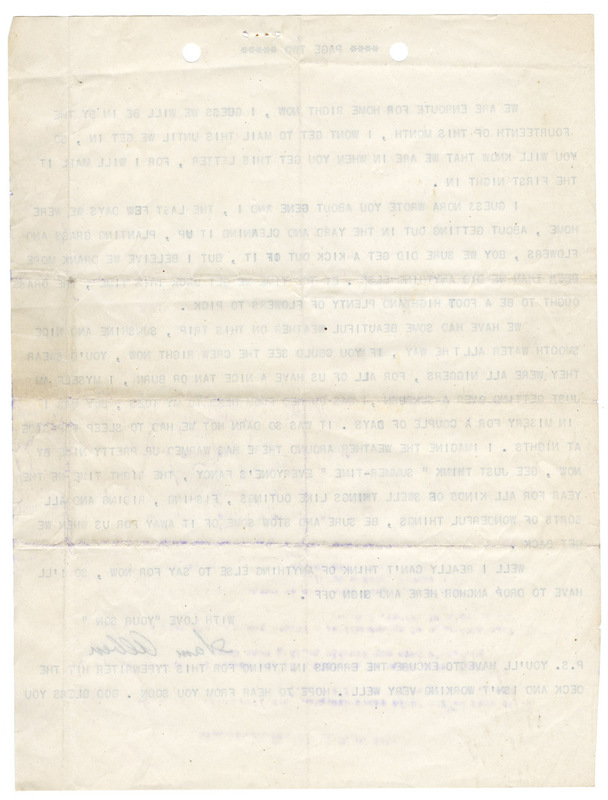 **** PAGE TWO *****
WE ARE ENROUTE FOR HOME RIGHT NOW , I GUESS WE WILL BE IN BY THE
FOURTEENTH OF THIS MONTH , I WONT GET TO MAIL THIS UNTIL WE GET IN , SO
YOU WILL KNOW THAT WE ARE IN WHEN YOU GET THIS LETTER , FOR I WILL MAIL IT
THE FIRST NIGHT IN .
I GUESS NORA WROTE YOU ABOUT GENE AND I , THE LAST FEW DAYS WE WERE
HOME , ABOUT GETTING OUT IN THE YARD AND CLEANING IT UP , PLANTING GRASS AND
FLOWERS , BOY WE SURE DID GET A KICK OUT OF IT , BUT I BELIVE WE DRANK MORE
BEER THAN WE DID ANYTHING ELSE . BACK THIS TIME ,
OUGHT TO BE A FOOT HIGH AND PLENTY OF FLOWERS TO PICK .
WE HAVE HAD SOME BEAUTIFUL WEATHER ON THIS TRIP , SUNSHINE AND NICE
SMOOTH WATER ALL THE WAY , IF YOU COULD SEE THE CREW RIGHT NOW , YOU'D SWEAR
THEY WERE ALL NIGGERS , FOR ALL OF US HAVE A NICE TAN OR BURN , I MYSELF AM
JUST GETTING OVER A SUNBURN ,
IN MISERY FOR A COUPLE OF DAYS . IT WAS SO DARN HOT WE HAD TO SLEEP
AT NIGHTS . I IMAGINE THE WEATHER AROUND THERE HAS WAMED UP PRETTY NICE BY
NOW , GEE JUST THINK " SUMMER-TIME " EVERYONE'S FANCY , THE RIGHT TIME OF THE
YEAR FOR ALL KINDS OF SWELL THINGS LIKE OUTINGS , FISHING , RIDING AND ALL
SORTS OF WONDERFUL THINGS , BE SURE AND STOW SOME OF IT AWAY FOR US WHEN WE
GET BACK .
WELL I REALLY CAN'T THINK OF ANYTHING ELSE TO SAY FOR NOW , SO I'LL
HAVE TO DROP ANCHOR HERE AND SIGN OFF .
WITH LOVE "YOUR SON "
P.S. YOU'LL HAVE TO EXCUSE THE ERRORS IN TYPING FOR THIS TYPEWRITER HIT THE
DECK AND ISN'T WORKING VERY WELL . HOPE TO HEAR FROM YOU SOON . GOD BLESS YOU